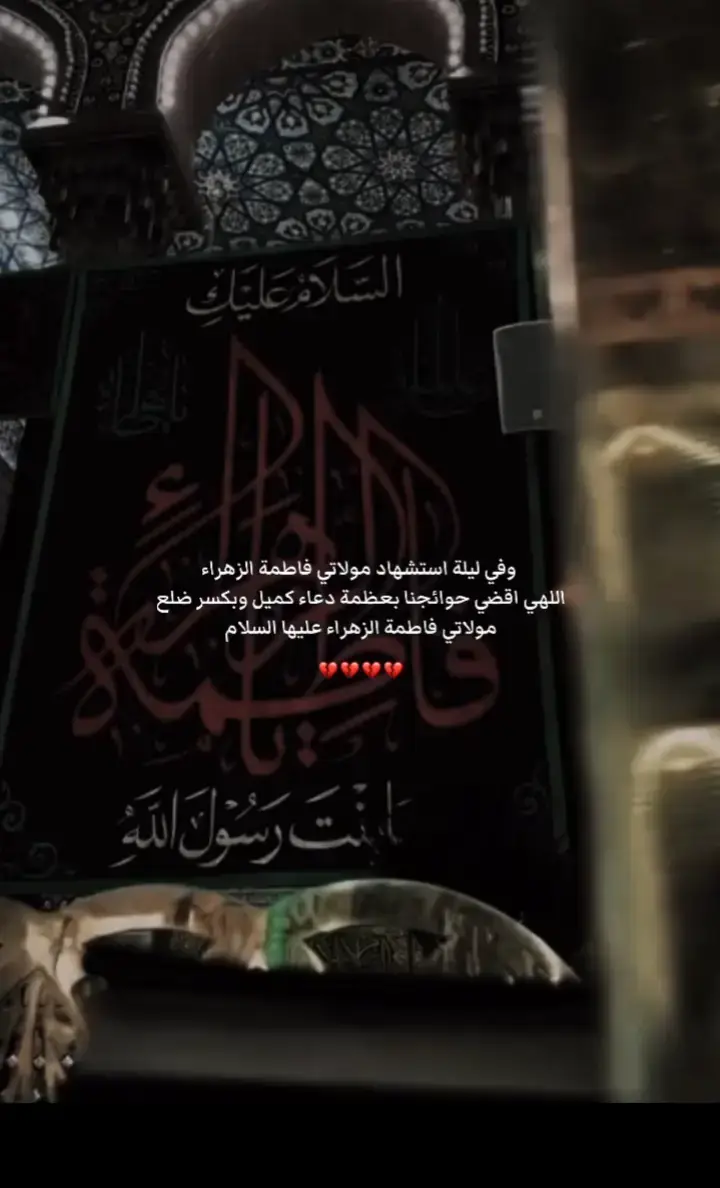 السَّلَامُ عَلَيْكِ
يا فاطمة الزهراء
يَا بِنْتَ رَسُولَ اللهِ
وفي ليلة استشهاد مولاتي فاطمة الزهراء
اللهي اقضي حوائجنا بعظمة دعاء كميل وبكسر ضلع
مولاتي فاطمة الزهراء عليها السلام
💔💔💔💔